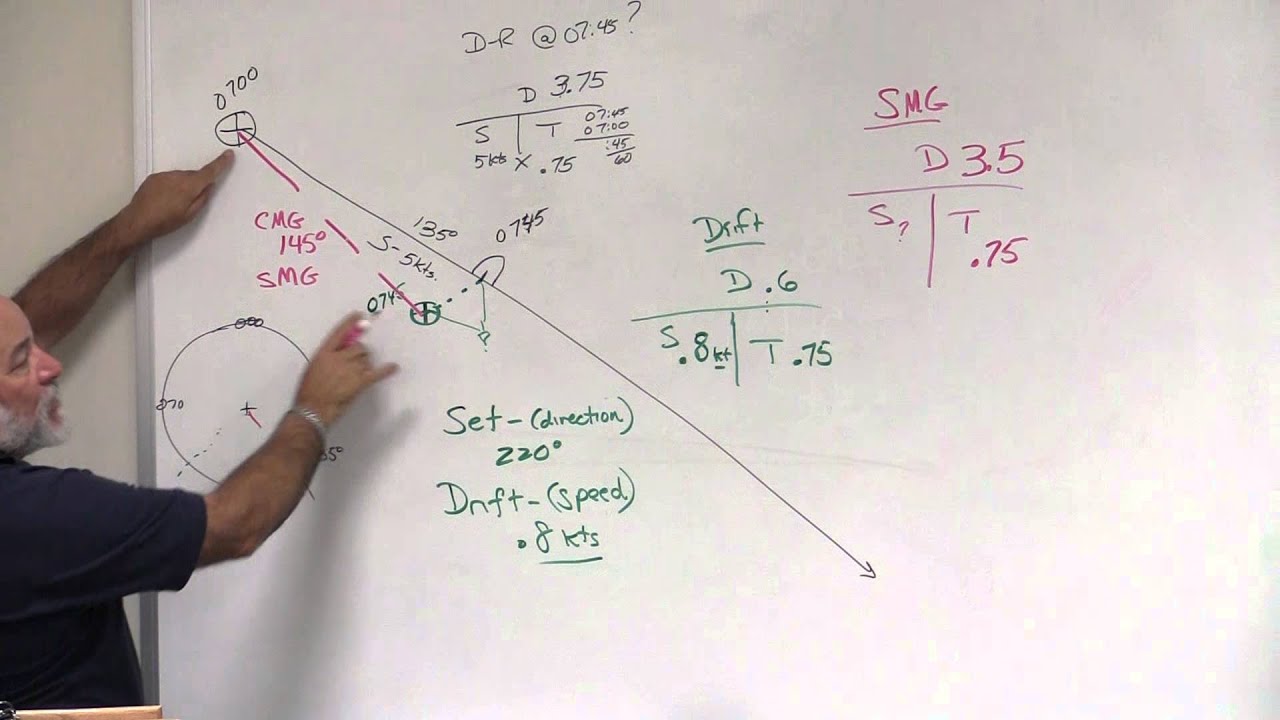 D-R @ 07:45?
0700
D 3.75
S T 07:45
07:00
:45
60
5kts X .75
SMG
D 3.5
S? T
.75
135°
S-5kts.
0745
CMG
145°
SMG
0745
Drift
D .6
S .8kt T .75
000
270
Set-(direction)
220°
Drift-(speed)
.8 kts